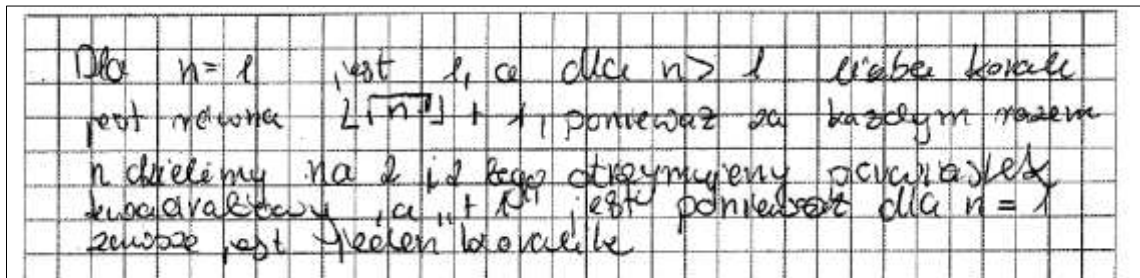 Dla n=1 jest 1, a dla n>1 liczba korali
jest równa ⌊√n⌋ + 1, ponieważ za każdym razem
n dzielimy na 2 i z tego otrzymujemy pierwiastek
kwadratowy, a „+1" jest ponieważ dla n=1
zawsze jest jeden koralik